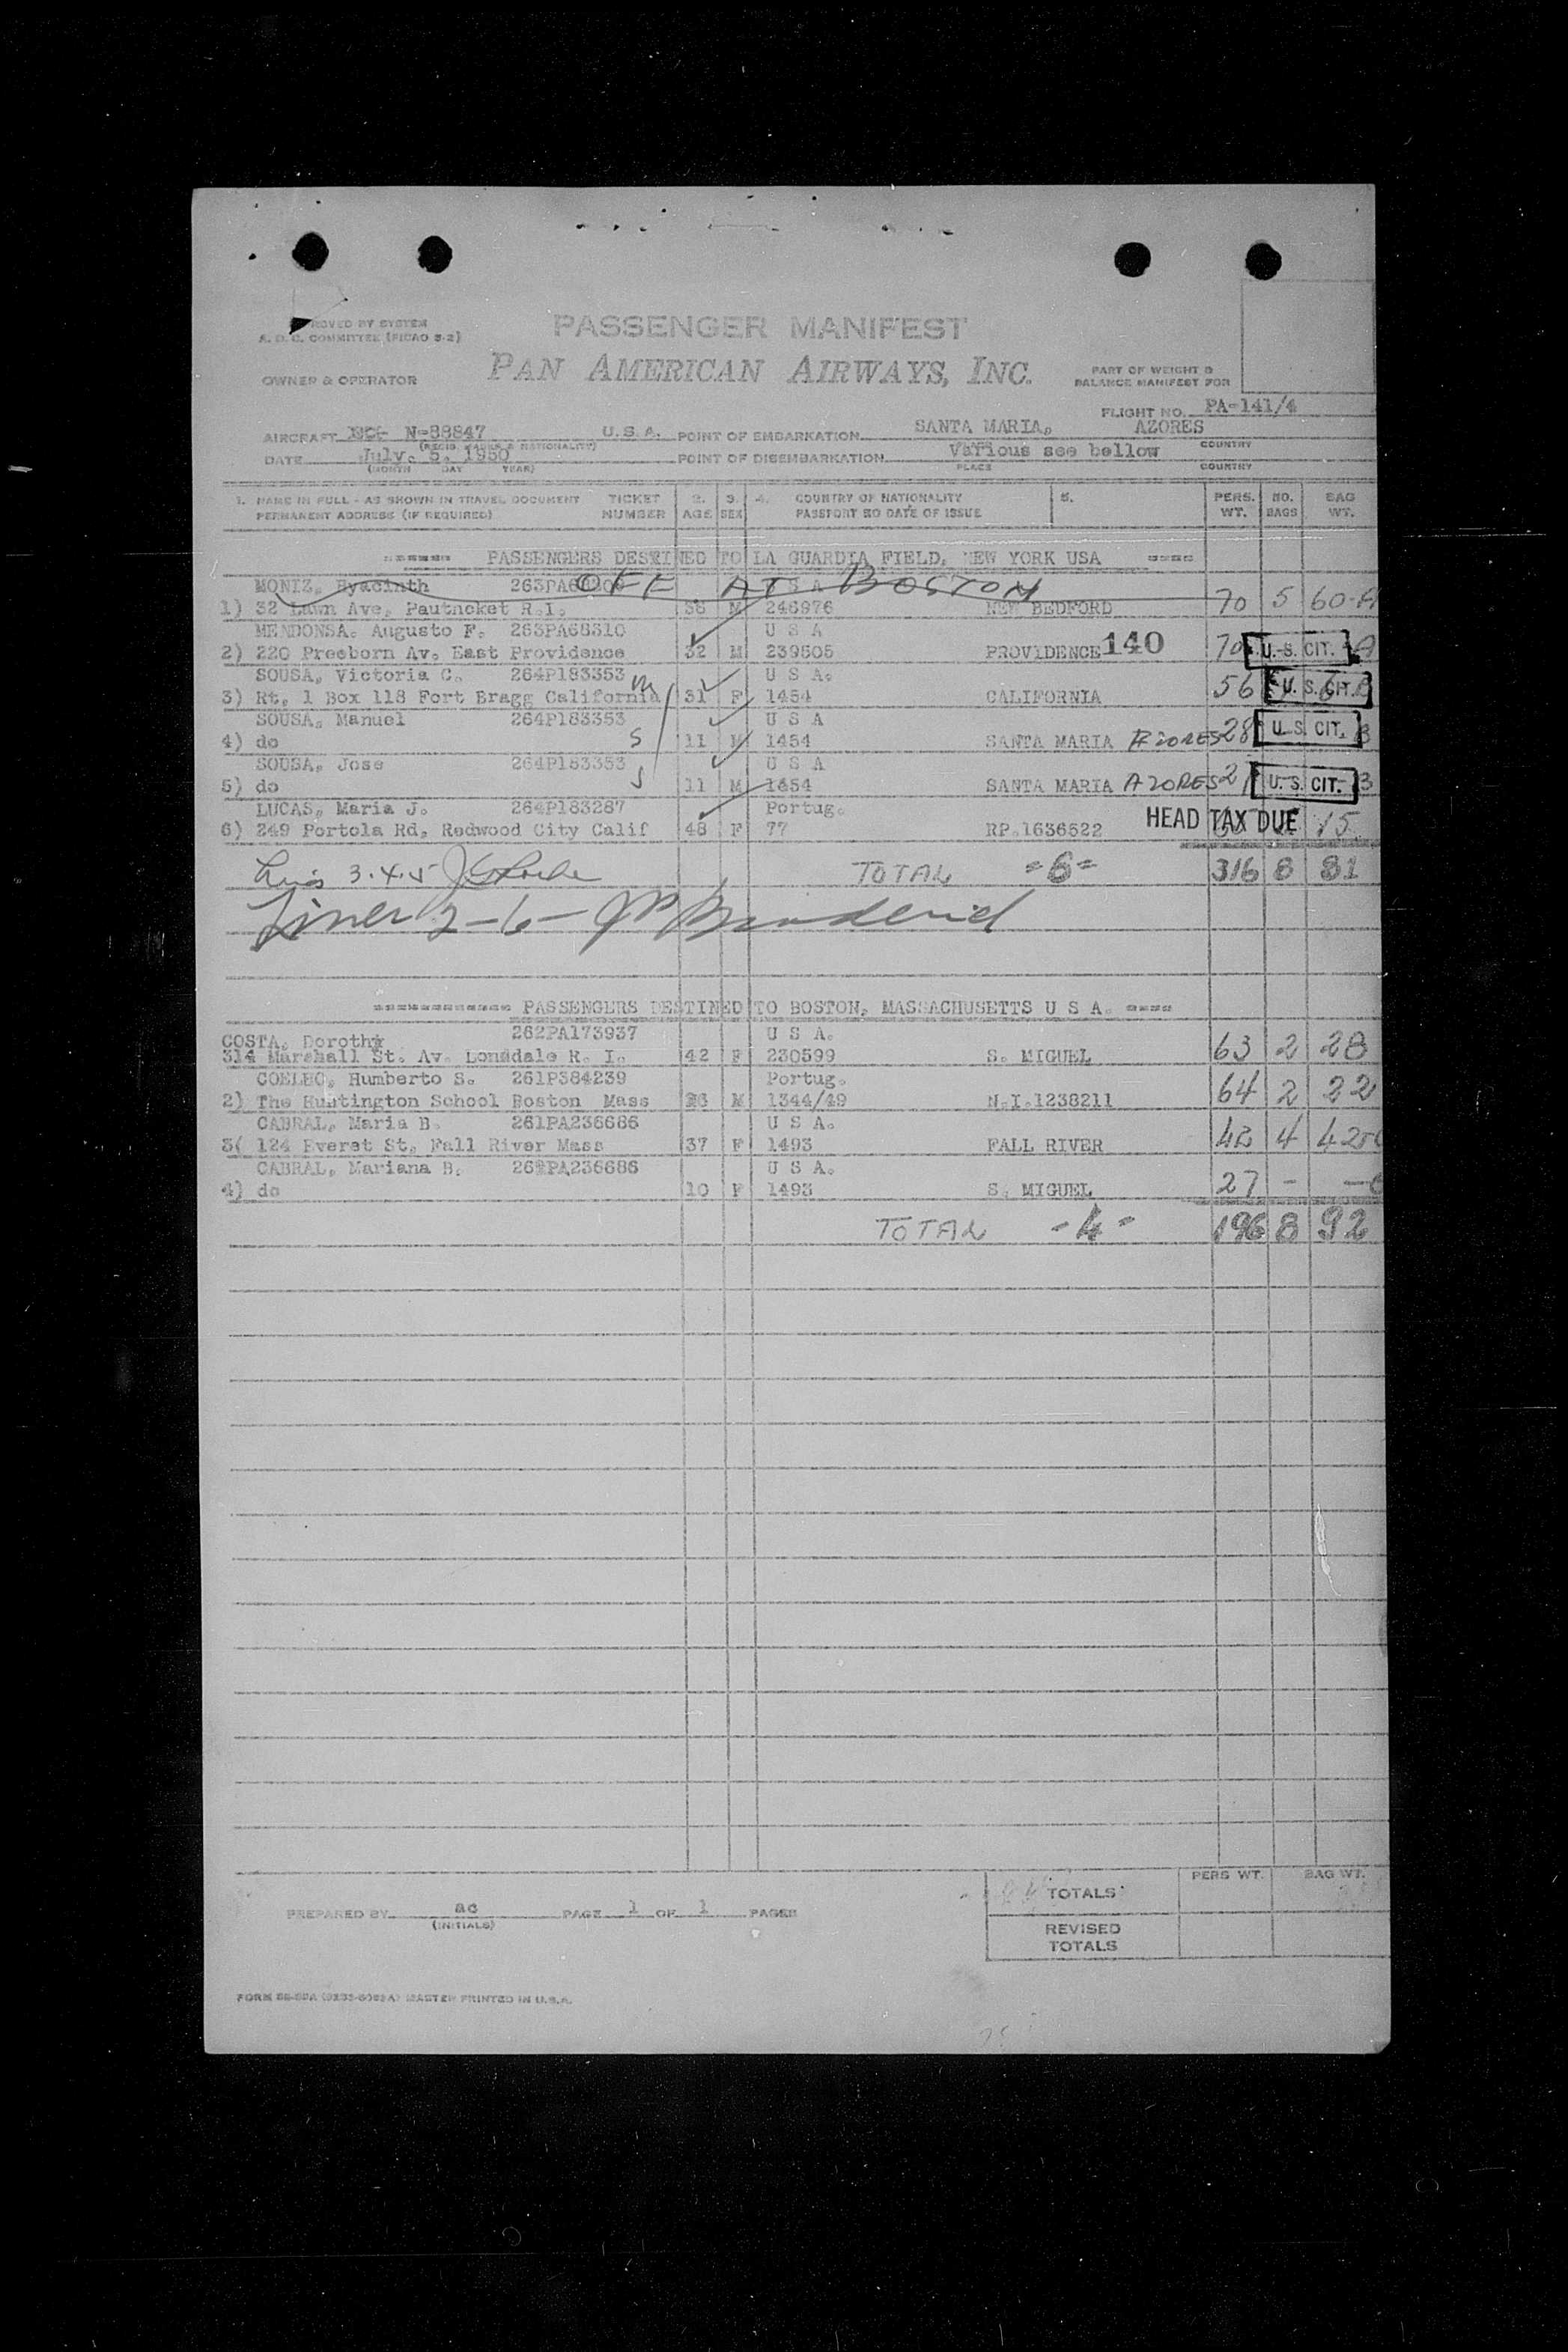 PROVED BY SYSTEM
A. D. C. COMMITTEE (FICAO 5-2)
PASSENGER MANIFEST
OWNER & OPERATOR PAN AMERICAN AIRWAYS, INC.
PART OF WEIGHT &
BALANCE MANIFEST FOR
FLIGHT NO. PA-141/4
AIRCRAFT N-88847 U.S.A. POINT OF EMBARKATION SANTA MARIA, AZORES
(REGIS. MARKS & NATIONALITY) COUNTRY
DATE July. 5, 1950 POINT OF DISEMBARKATION Various see bellow
(MONTH DAY YEAR) PLACE COUNTRY
1. NAME IN FULL - AS SHOWN IN TRAVEL DOCUMENT TICKET 2. 3. 4. COUNTRY OF NATIONALITY 5. PERS. NO. BAG
PERMANENT ADDRESS (IF REQUIRED) NUMBER AGE SEX PASSPORT NO DATE OF ISSUE WT. BAGS WT.
===== PASSENGERS DESTINED TO LA GUARDIA FIELD, NEW YORK USA ====
MONIZ, Hyacinth OFF AT BOSTON
1) 32 Lawn Ave, Pautucket R.I. M 246976 NEW BEDFORD 70 5 60-A
MENDONSA, Augusto F. 263PA68310 U S A
2) 220 Freeborn Av. East Providence 32 M 239505 PROVIDENCE 140 70 U.S. CIT. A
SOUSA, Victoria C. 264P183353 U S A.
3) Rt. 1 Box 118 Fort Bragg California 31 F 1454 CALIFORNIA 56 U.S. CIT. B
SOUSA, Manuel 264P183353 U S A
4) do S 11 M 1454 SANTA MARIA AZORES 28 U.S. CIT. B
SOUSA, Jose 264P183353 U S A
5) do 11 M 1454 SANTA MARIA AZORES U.S. CIT. B
LUCAS, Maria J. 264P183287 Portug.
6) 249 Portola Rd, Redwood City Calif 48 F 77 RP.1636522 HEAD TAX DUE 15
3.4.5 TOTAL =6= 316 8 81
2-6-
=========== PASSENGERS DESTINED TO BOSTON, MASSACHUSETTS U S A. ====
262PA173937 U S A.
COSTA, Dorothy
314 Marshall St. Av. Lonsdale R. I. 42 F 230599 S. MIGUEL 63 2 28
COELHO, Humberto S. 261P384239 Portug.
2) The Huntington School Boston Mass M 1344/49 N.I.1238211 64 2 22
CABRAL, Maria B. 261PA236686 U S A.
3( 124 Everet St. Fall River Mass 37 F 1493 FALL RIVER 42 4 42-C
CABRAL, Mariana B. 261PA236686 U S A.
4) do 10 F 1493 S. MIGUEL 27 - -C
TOTAL -4- 196 8 92
PERS WT. BAG WT.
TOTALS
PREPARED BY ac PAGE 1 OF 1 PAGES
(INITIALS)
REVISED
TOTALS
MASTER PRINTED IN U.S.A.